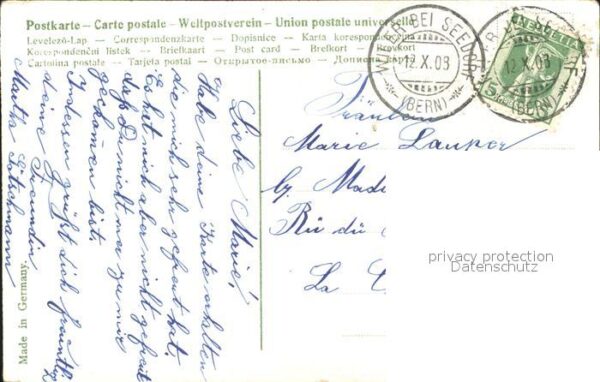 Postkarte – Carte postale – Weltpostverein – Union postale universelle
Levelező-Lap — Correspondenzkarte — Dopisnice — Karta korespondencyjna
Korespondenční lístek — Briefkaart — Post card — Brefkort — Brevkort
Cartolina postale — Tarjeta postal — Открытое письмо —
BEI SEEDORF
12.X.08
(BERN)
HELVETIA
5
12.X.08
(BERN)
Fräulein
Marie Lauper
Made
Rü du
La C
privacy protection
Datenschutz
Liebe Marie!
Habe deine Karte erhalten
die mich sehr gefreut hat.
Es hat mich aber nicht gefreut
daß Du nicht mer zu mir
gekommen bist.
Indessen grüßt dich freundl.
deine Freundin
Martha
Made in Germany.